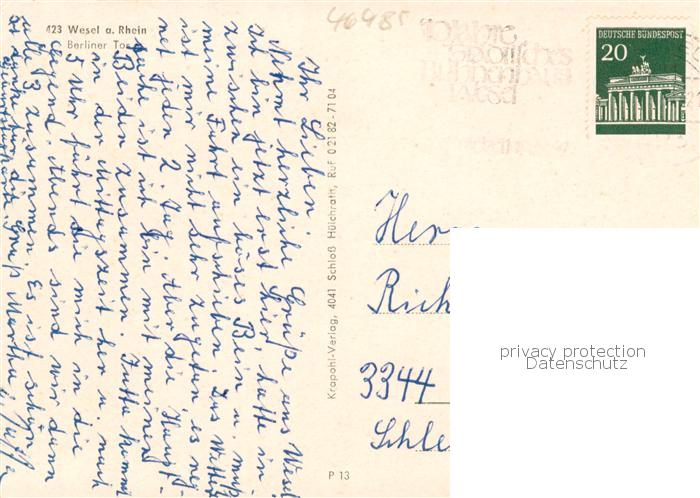 46485
423 Wesel a. Rhein
Berliner Tor
10 Jahre
Wesel
DEUTSCHE BUNDESPOST
20
Ihr Lieben.
Nehmt herzliche Grüße aus Wesel
Ich bin jetzt erst hier, hatte in-
zwischen ein böses Bein u. muß
meine Fahrt aufschieben. Das Wetter
ist mir nicht sehr zugetan, es reg-
net jeden 2. Tag. Aber die Haupt-
sache ist ich bin mit meinen
Beiden zusammen. Jutta kommt
in der Mittagszeit her u. nach
5 Uhr führt sie mich in die
Gegend. Abends sind wir dann
alle 3 zusammen. Es ist schön
Gruß Martha u. Jutta
Krapohl-Verlag, 4041 Schloß Hülchrath, Ruf 0 21 82 - 71 04
P 13
Herr
Rich
3344
Schle
privacy protection
Datenschutz